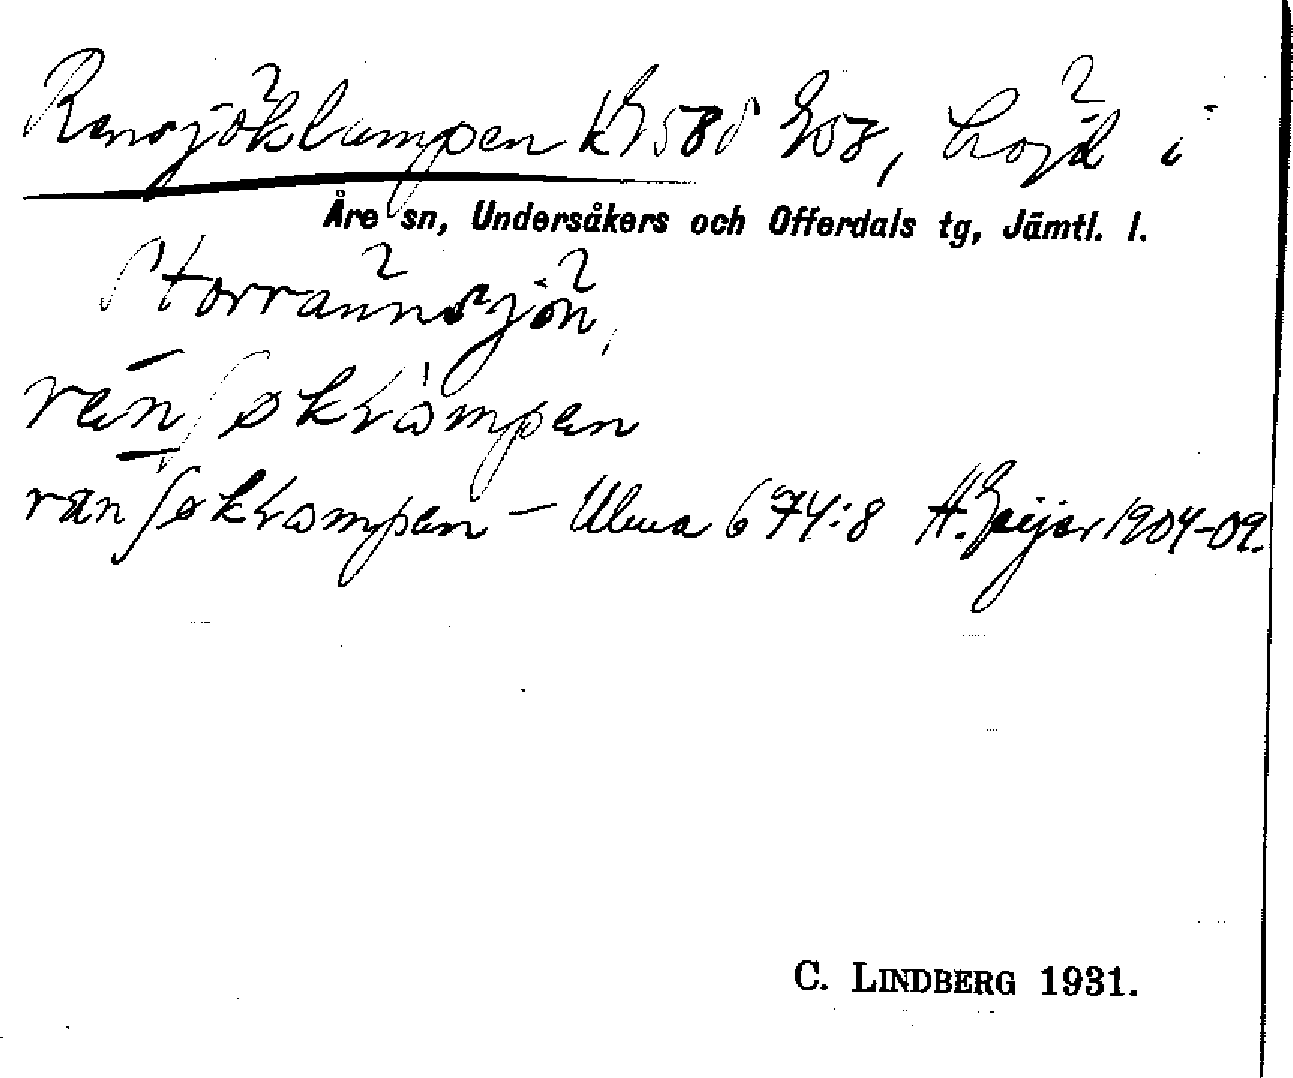 Rensjöklumpen K 58 858, höjd i
Åre sn, Undersåkers och Offerdals tg, Jämtl. l.
Storrännsjön,
rän ʃøkḷompen
rän ʃøkḷompen – Ulua 674:8 H. Geijer 1904-09.
C. LINDBERG 1931.